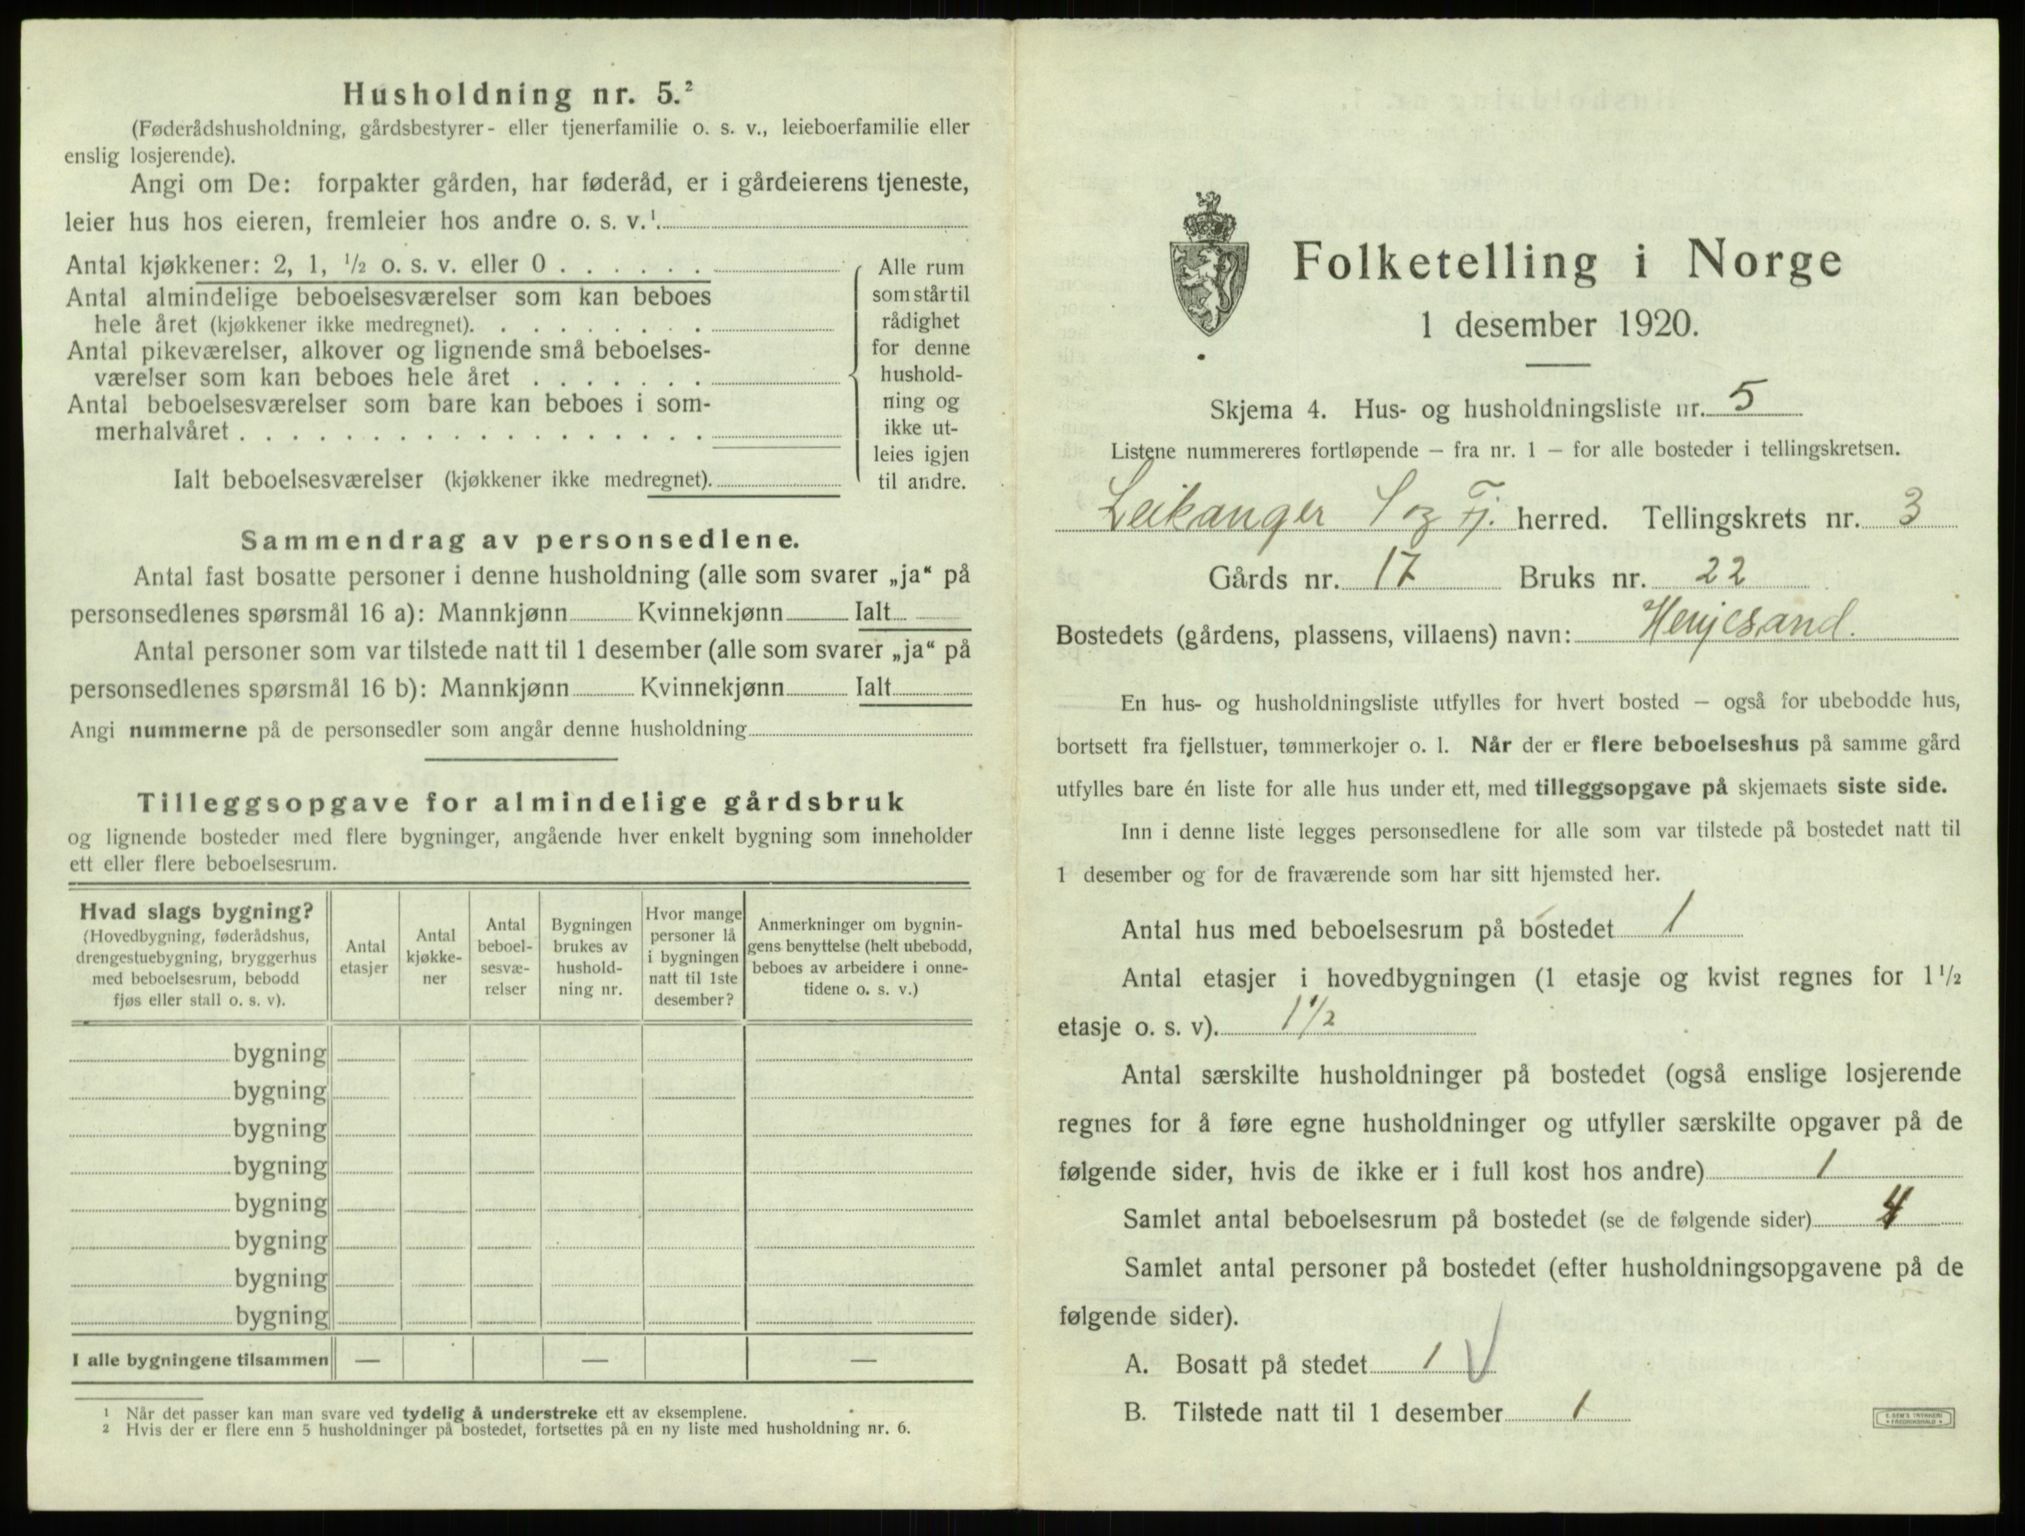 Husholdning nr. 5.²
(Føderådshusholdning, gårdsbestyrer- eller tjenerfamilie o. s. v., leieboerfamilie eller
enslig losjerende).
Angi om De: forpakter gården, har føderåd, er i gårdeierens tjeneste,
leier hus hos eieren, fremleier hos andre o. s. v.¹
Antal kjøkkener: 2, 1, ½ o. s. v. eller 0 . . . . . .
Antal almindelige beboelsesværelser som kan beboes
hele året (kjøkkener ikke medregnet). . . . . . . . .
Antal pikeværelser, alkover og lignende små beboelses-
værelser som kan beboes hele året . . . . . . .
Antal beboelsesværelser som bare kan beboes i som-
merhalvåret . . . . . . . . . . . . . . . . . .
Ialt beboelsesværelser (kjøkkener ikke medregnet).
Alle rum
som står til
rådighet
for denne
hushold-
ning og
ikke ut-
leies igjen
til andre.
Sammendrag av personsedlene.
Antal fast bosatte personer i denne husholdning (alle som svarer „ja“ på
personsedlenes spørsmål 16 a): Mannkjønn Kvinnekjønn Ialt
Antal personer som var tilstede natt til 1 desember (alle som svarer „ja“ på
personsedlenes spørsmål 16 b): Mannkjønn Kvinnekjønn Ialt
Angi nummerne på de personsedler som angår denne husholdning
Tilleggsopgave for almindelige gårdsbruk
og lignende bosteder med flere bygninger, angående hver enkelt bygning som inneholder
ett eller flere beboelsesrum.
Hvad slags bygning?
(Hovedbygning, føderådshus,
drengestuebygning, bryggerhus
med beboelsesrum, bebodd
fjøs eller stall o. s. v).
Antal
etasjer
Antal
kjøkke-
ner
Antal
beboel-
sesvæ-
relser
Bygningen
brukes av
hushold-
ning nr.
Hvor mange
personer lå
i bygningen
natt til 1ste
desember?
Anmerkninger om bygnin-
gens benyttelse (helt ubebodd,
beboes av arbeidere i onne-
tidene o. s. v.)
bygning
bygning
bygning
bygning
bygning
bygning
bygning
bygning
I alle bygningene tilsammen — — —
¹ Når det passer kan man svare ved tydelig å understreke ett av eksemplene.
² Hvis der er flere enn 5 husholdninger på bostedet, fortsettes på en ny liste med husholdning nr. 6.
Folketelling i Norge
1 desember 1920.
Skjema 4. Hus- og husholdningsliste nr. 5
Listene nummereres fortløpende – fra nr. 1 – for alle bosteder i tellingskretsen.
Leikanger S og Fj. herred. Tellingskrets nr. 3
Gårds nr. 17 Bruks nr. 22
Bostedets (gårdens, plassens, villaens) navn: Henjesand.
En hus- og husholdningsliste utfylles for hvert bosted – også for ubebodde hus,
bortsett fra fjellstuer, tømmerkojer o. l. Når der er flere beboelseshus på samme gård
utfylles bare én liste for alle hus under ett, med tilleggsopgave på skjemaets siste side.
Inn i denne liste legges personsedlene for alle som var tilstede på bostedet natt til
1 desember og for de fraværende som har sitt hjemsted her.
Antal hus med beboelsesrum på bostedet 1
Antal etasjer i hovedbygningen (1 etasje og kvist regnes for 1½
etasje o. s. v). 1½
Antal særskilte husholdninger på bostedet (også enslige losjerende
regnes for å føre egne husholdninger og utfyller særskilte opgaver på de
følgende sider, hvis de ikke er i full kost hos andre) 1
Samlet antal beboelsesrum på bostedet (se de følgende sider) 4
Samlet antal personer på bostedet (efter husholdningsopgavene på de
følgende sider).
A. Bosatt på stedet 1 V
B. Tilstede natt til 1 desember 1
E. SEM'S TRYKKERI
FREDRIKSHALD